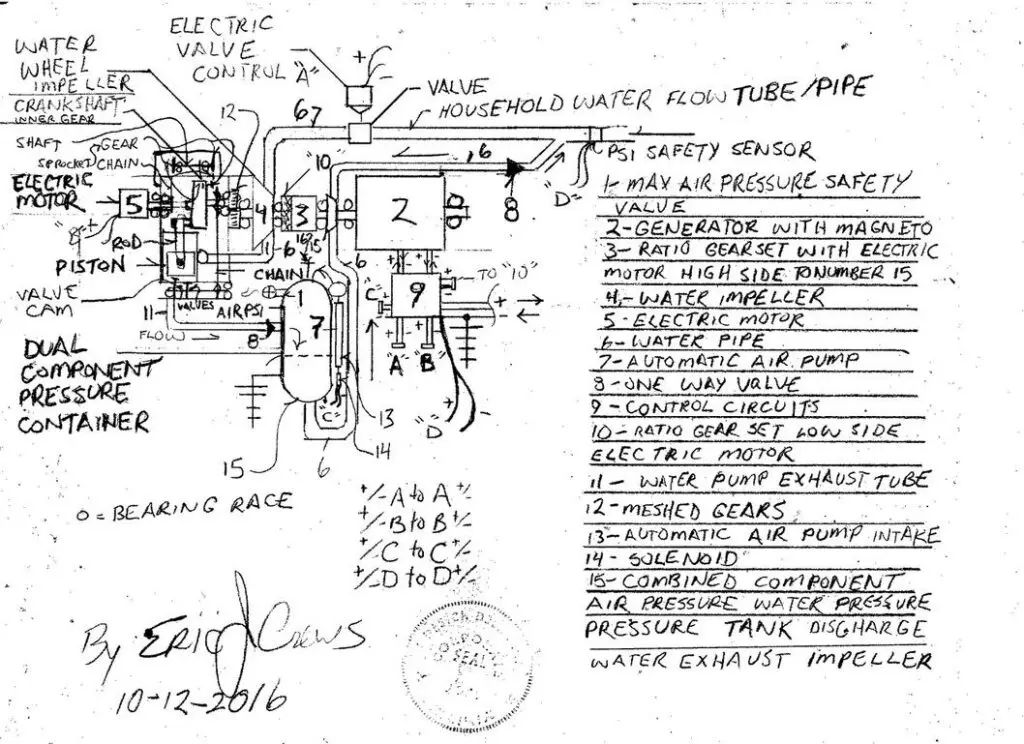 ELECTRIC
VALVE
CONTROL "A"
WATER
WHEEL
IMPELLER
CRANKSHAFT
INNER GEAR
SHAFT
GEAR
SPROCKET CHAIN
ELECTRIC
MOTOR
12
+
-
VALVE
HOUSEHOLD WATER FLOW TUBE/PIPE
67
PSI SAFETY SENSOR
"D"
"10"
6
8
5
4
3
2
"B" +
ROD
PISTON
6
15
6
CHAIN
VALVE
CAM
11
VALVES
AIR PSI
FLOW
8
1
7
"C"
9
TO "10"
+
-
"A"
"B"
"D"
+
-
DUAL
COMPONENT
PRESSURE
CONTAINER
"C"
13
14
15
6
O = BEARING RACE
+/- A to A +/-
+/- B to B +/-
+/- C to C +/-
+/- D to D +/-
By ERIC J Crews
10-12-2016
SEAL
1- MAX AIR PRESSURE SAFETY
VALUE
2- GENERATOR WITH MAGNETO
3- RATIO GEARSET WITH ELECTRIC
MOTOR HIGH SIDE TO NUMBER 15
4,- WATER IMPELLER
5- ELECTRIC MOTOR
6- WATER PIPE
7- AUTOMATIC AIR PUMP
8- ONE WAY VALVE
9- CONTROL CIRCUITS
10- RATIO GEAR SET LOW SIDE
ELECTRIC MOTOR
11- WATER PUMP EXHAUST TUBE
12- MESHED GEARS
13- AUTOMATIC AIR PUMP INTAKE
14- SOLENOID
15- COMBINED COMPONENT
AIR PRESSURE WATER PRESSURE
PRESSURE TANK DISGHARGE
WATER EXHAUST IMPELLER